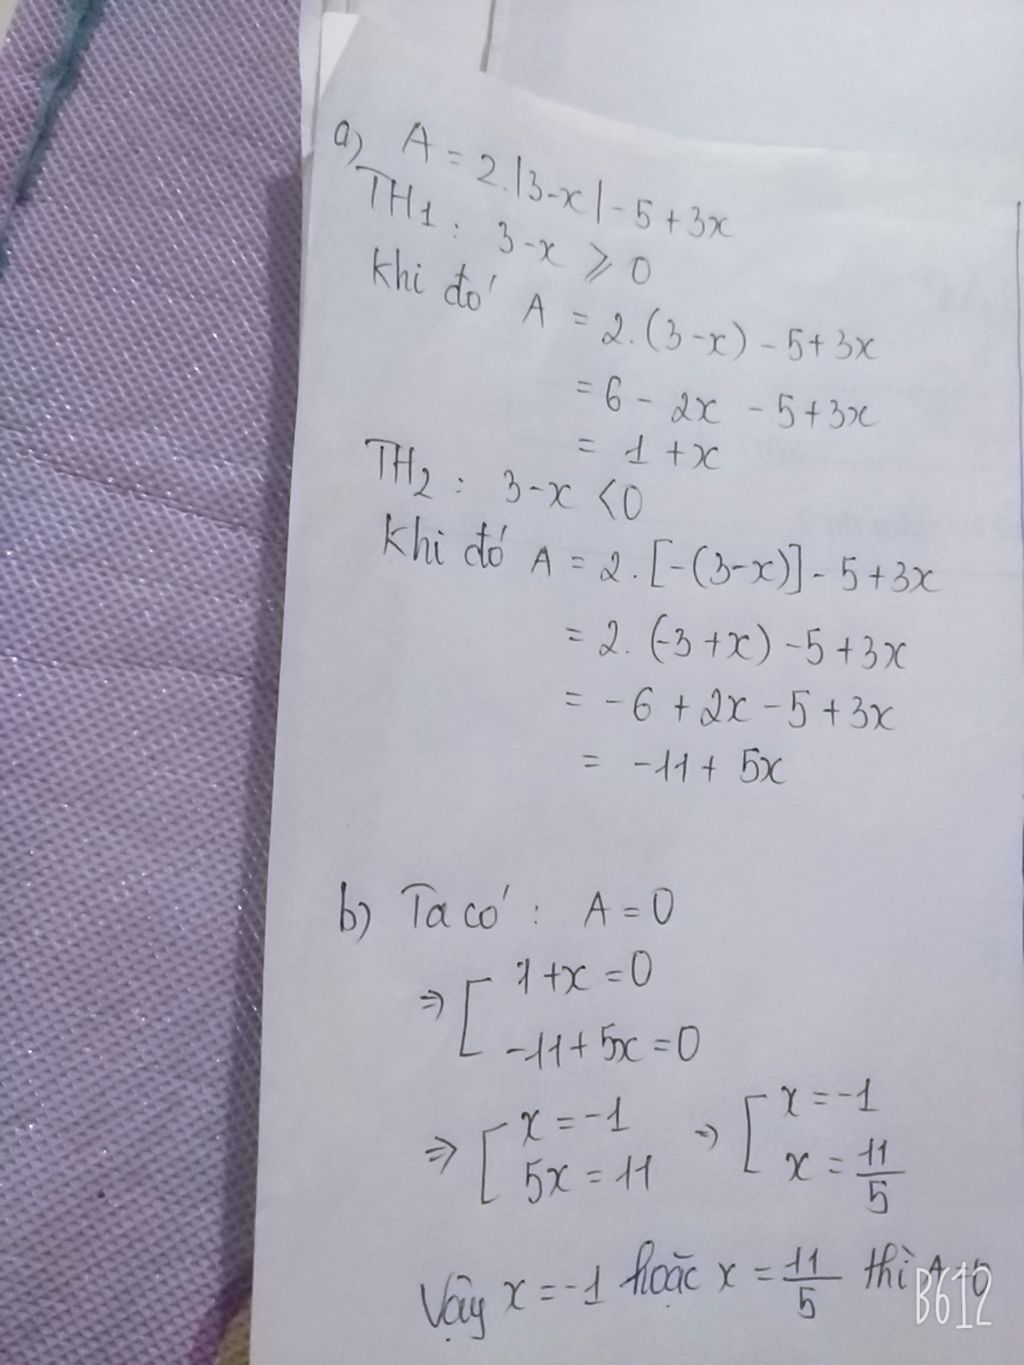 a) A = 2.|3-x| - 5 + 3x
TH1 : 3-x ⩾ 0
Khi đó A = 2.(3-x) - 5 + 3x
= 6 - 2x - 5 + 3x
= 1 + x
TH2 : 3-x < 0
Khi đó A = 2.[-(3-x)] - 5 + 3x
= 2. (-3 + x) - 5 + 3x
= -6 + 2x - 5 + 3x
= -11 + 5x
b) Ta có : A = 0
⇒ [ 1 + x = 0
-11 + 5x = 0
⇒ [ x = -1 ⇒ [ x = -1
5x = 11 x = 11/5
Vậy x = -1 hoặc x = 11/5 thì A = 0
B612